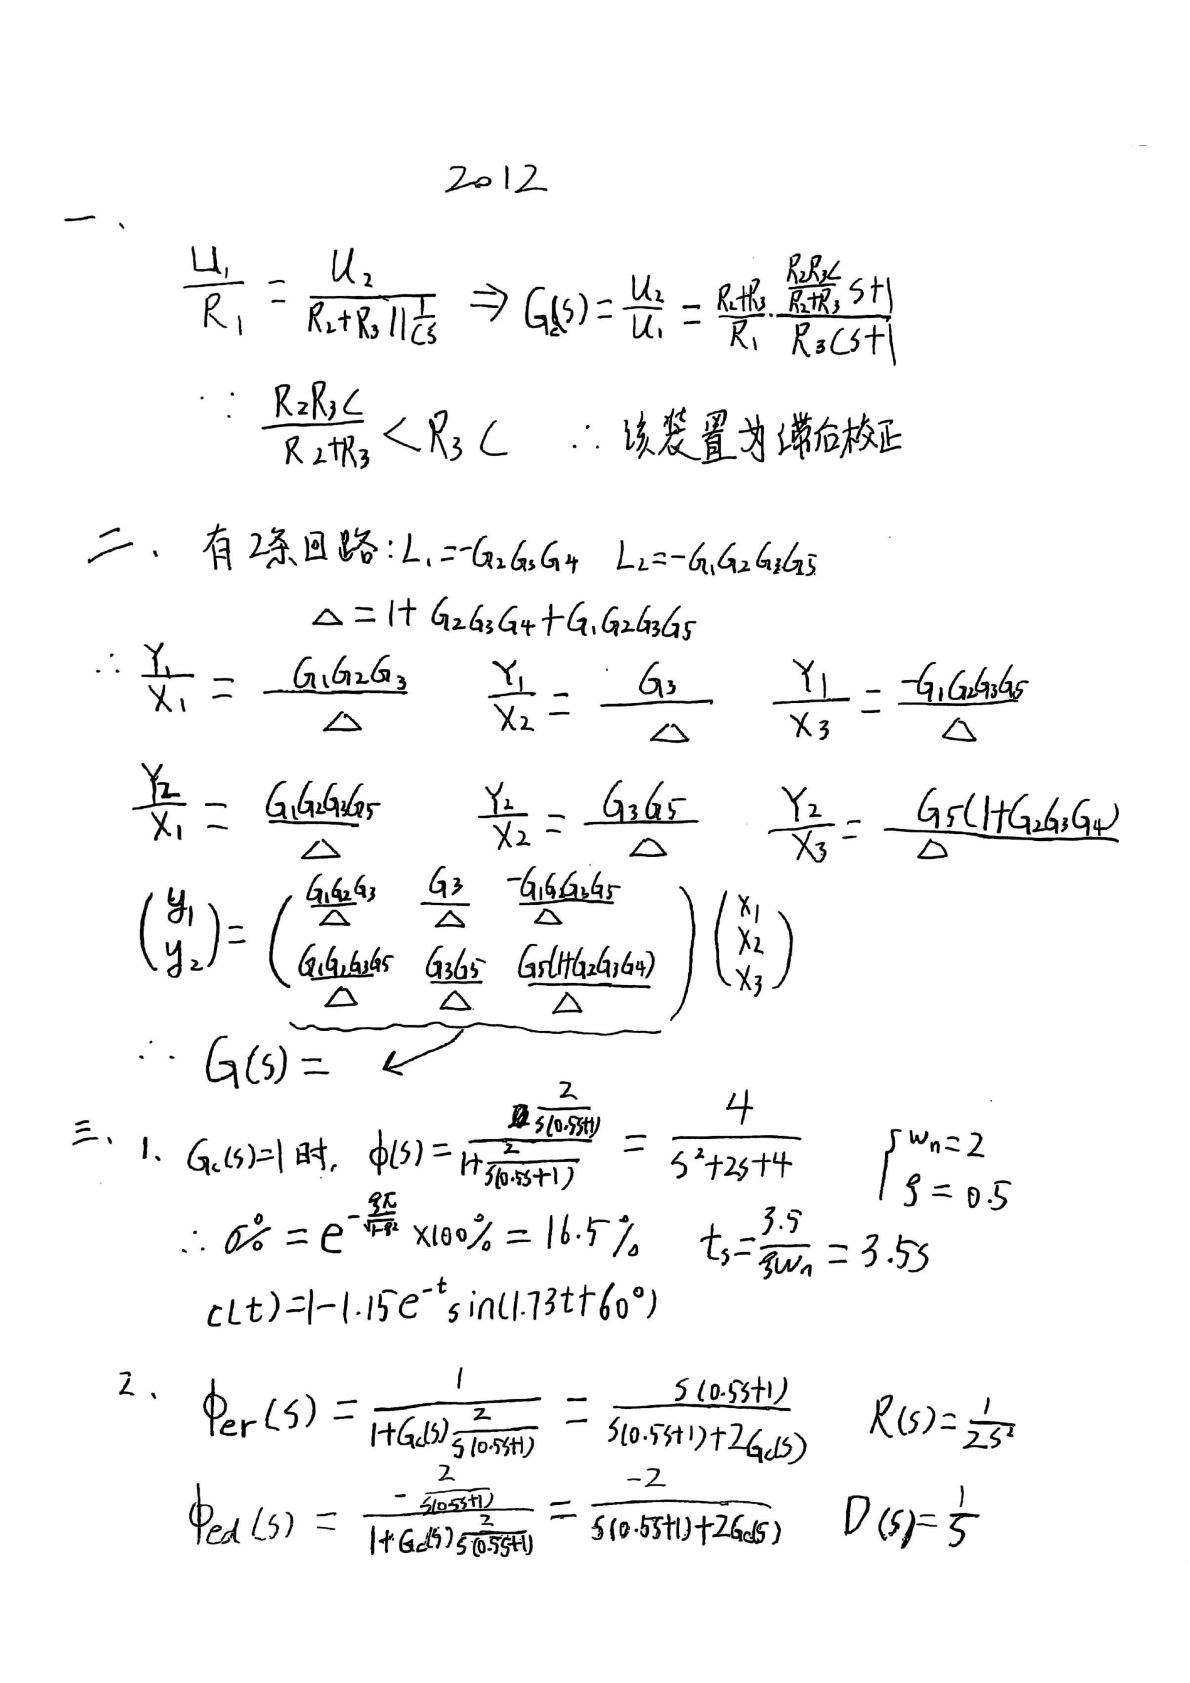 2012
一、
U₁/R₁ = U₂/(R₂+R₃∥1/(Cs)) ⇒ Gc(s) = U₂/U₁ = (R₂+R₃)/R₁ · ((R₂R₃C/(R₂+R₃))s+1)/(R₃Cs+1)
∵ R₂R₃C/(R₂+R₃) < R₃C ∴ 该装置为滞后校正
二、有2条回路: L₁=-G₂G₃G₄ L₂=-G₁G₂G₃G₅
△=1+G₂G₃G₄+G₁G₂G₃G₅
∴ Y₁/X₁ = G₁G₂G₃/△ Y₁/X₂ = G₃/△ Y₁/X₃ = -G₁G₂G₃G₅/△
Y₂/X₁ = G₁G₂G₃G₅/△ Y₂/X₂ = G₃G₅/△ Y₂/X₃ = G₅(1+G₂G₃G₄)/△
(y₁ y₂) = (G₁G₂G₃/△ G₃/△ -G₁G₂G₃G₅/△
G₁G₂G₃G₅/△ G₃G₅/△ G₅(1+G₂G₃G₄)/△) (x₁ x₂ x₃)
∴ G(s) = ↙
三、1、Gc(s)=1时, ϕ(s) = (2/(s(0.5s+1)))/(1+2/(s(0.5s+1))) = 4/(s²+2s+4) { wn=2 ξ=0.5
∴ σ% = e^(-ξπ/√(1-ξ²)) ×100% = 16.5% ts = 3.5/(ξwn) = 3.5s
c(t)=1-1.15e^(-t)sin(1.73t+60°)
2、ϕer(s) = 1/(1+Gc(s)2/(s(0.5s+1))) = s(0.5s+1)/(s(0.5s+1)+2Gc(s)) R(s)=1/(2s²)
ϕed(s) = (-2/(s(0.5s+1)))/(1+Gc(s)2/(s(0.5s+1))) = -2/(s(0.5s+1)+2Gc(s)) D(s)=1/s